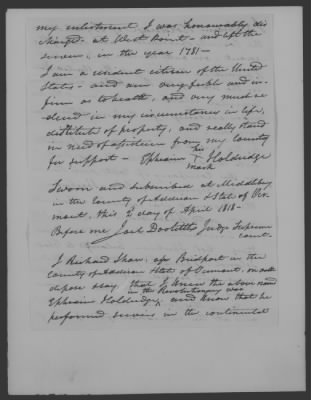 my enlistment I was honourably dis
charged - at West Point - and left the
service, in the year 1781 -
I am a resident citizen of the United
States - and am very feeble and in-
firm as to health, and very much re
duced in my circumstances in life,
destitute of property, and really stand
in need of assistance from my country
for support - Ephraim Holdridge
his
mark
Sworn and subscribed at Middlebury
in the County of Addison & State of Ver-
mont, this 2d day of April 1818 -
Before me Joel Doolittle Judge Supreme
Court.
I Richard Shaw, of Bridport in the
County of Addison State of Vermont, on oath
depose & say, that I knew the above named
in the Revolutionary war
Ephraim Holdridge, and know that he
performed service in the continental